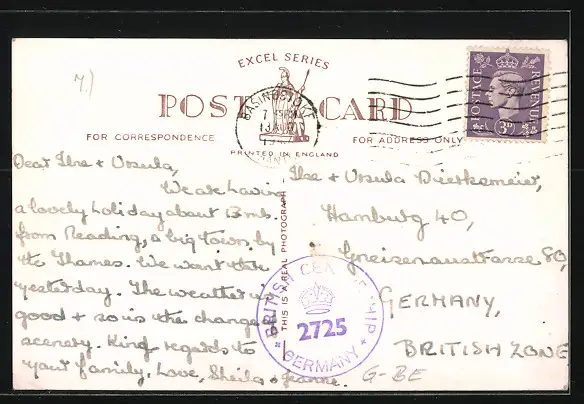 7.)
EXCEL SERIES
POST CARD
FOR CORRESPONDENCE
FOR ADDRESS ONLY
PRINTED IN ENGLAND
THIS IS A REAL PHOTOGRAPH
BASINGSTOKE
POSTAGE REVENUE
3D
Dear Ilse + Ursula,
We are having
a lovely holiday about 13 mls.
from Reading, a big town by
the Thames. We went there
yesterday. The weather is
good + so is the change of
scenery. Kind regards to
your family, Love, Sheila + Jeanne.
Ilse + Ursula Dierksmeier,
Hamburg 40,
Gneisenaustrasse 80,
GERMANY,
BRITISH ZONE
G-BE
BRITISH CENSORSHIP
2725
GERMANY